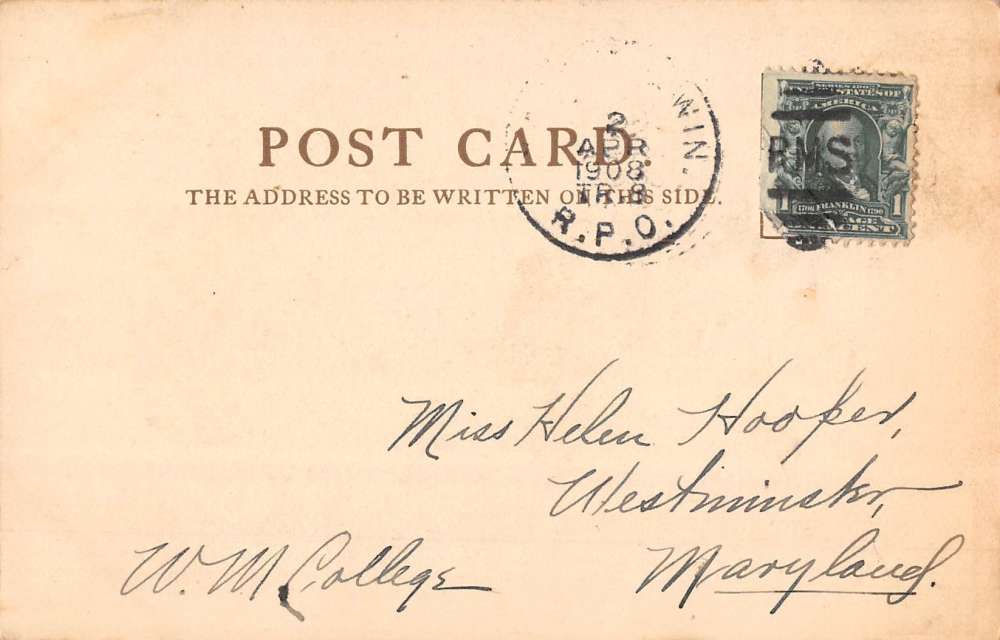 POST CARD.
THE ADDRESS TO BE WRITTEN ON THIS SIDE.
WIN.
2
APR
1908
TR. 8
R.P.O.
SERIES 1902
STATES OF
AMERICA
RMS
1706 FRANKLIN 1790
1
CENT
Miss Helen Hooper,
Westminster,
Maryland.
W. M. College